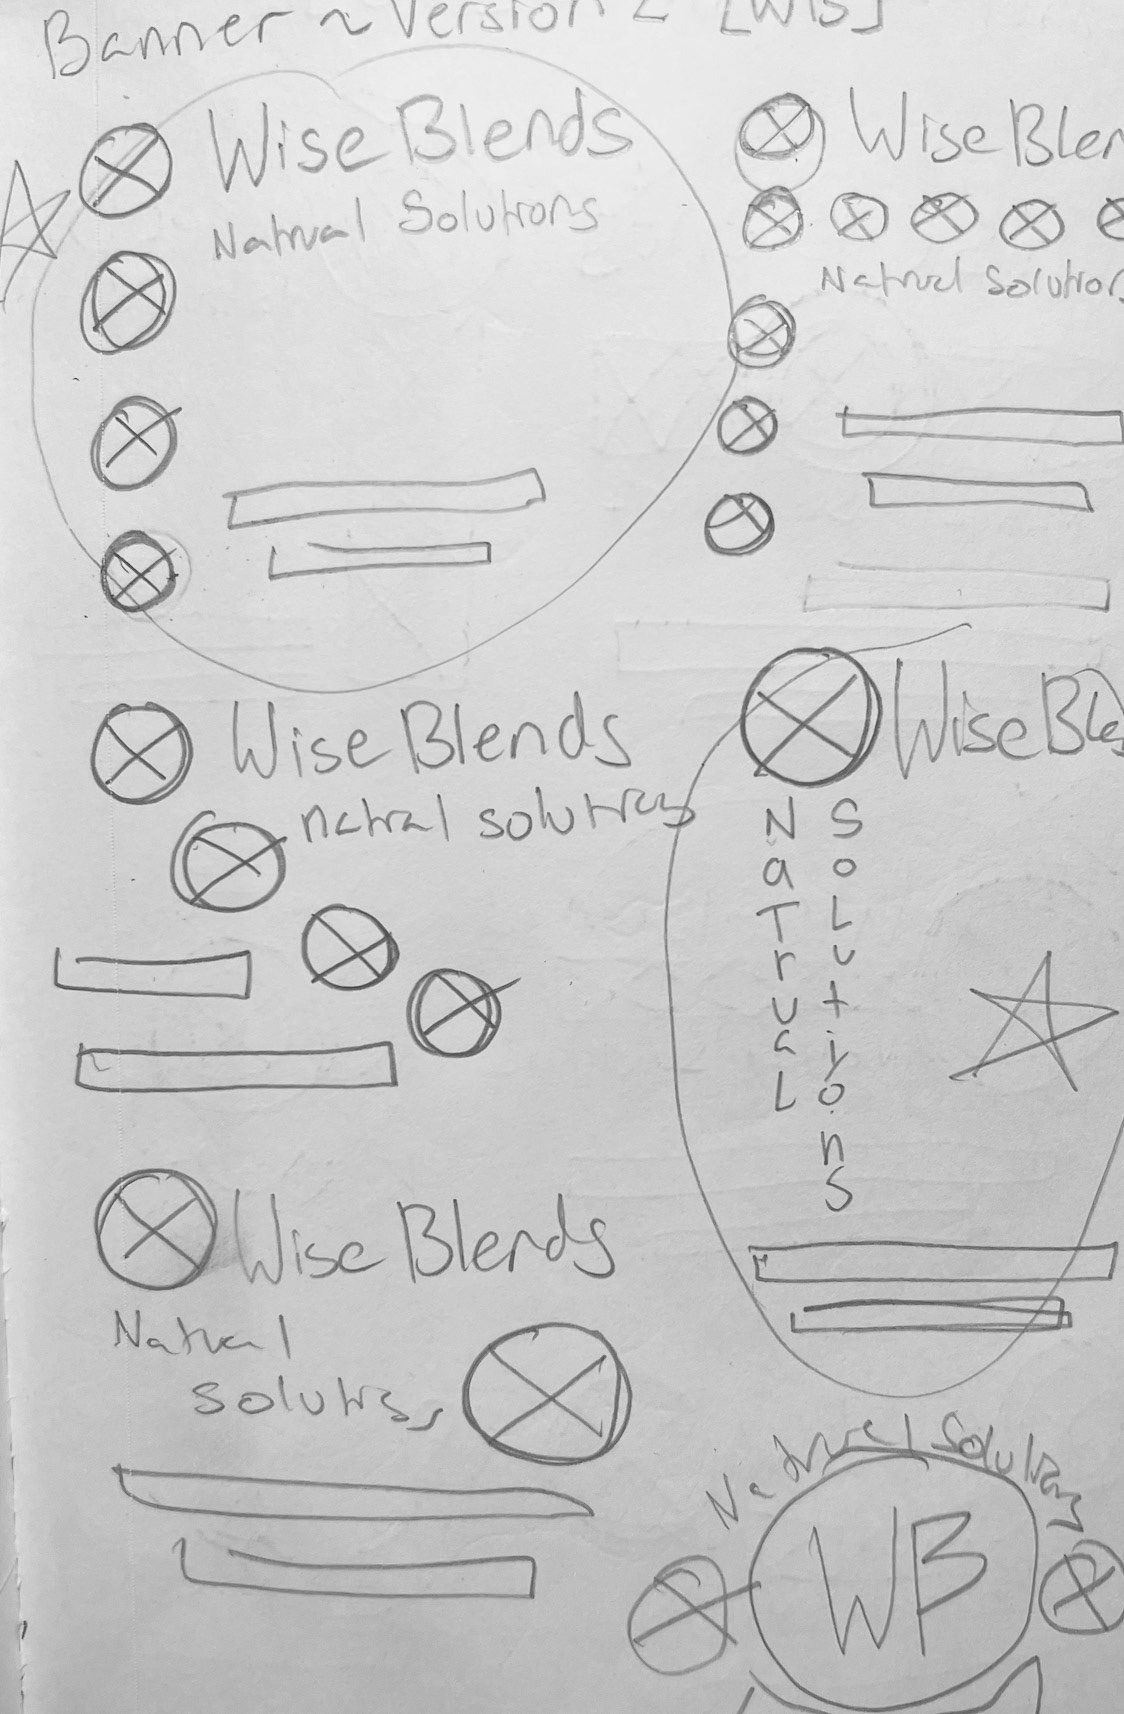 Banner ~ Version 2 [WIS]
Wise Blends
Natrual Solutions
Wise Blen
Natrual Solution
Wise Blends
natral solutions
Wise Ble
NaTruaL
SoLutions
Wise Blends
Natrual
solutis
Natural Solutions
WB